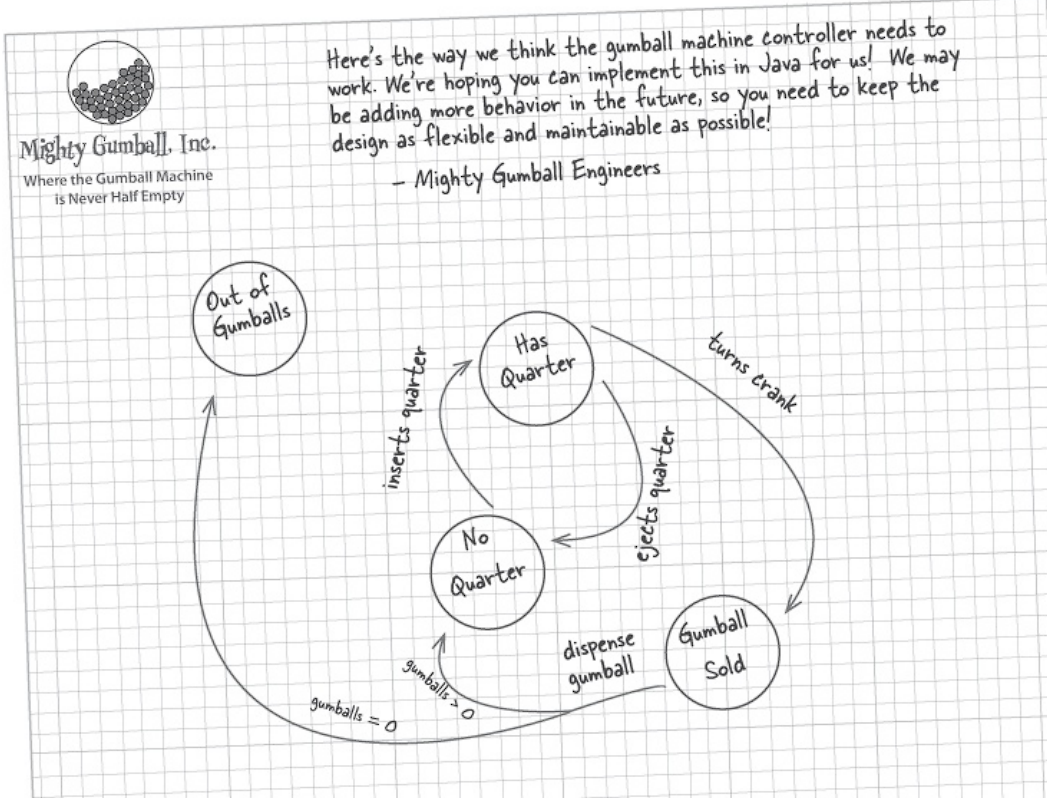 Mighty Gumball, Inc.
Where the Gumball Machine
is Never Half Empty
Here's the way we think the gumball machine controller needs to
work. We're hoping you can implement this in Java for us! We may
be adding more behavior in the future, so you need to keep the
design as flexible and maintainable as possible!
- Mighty Gumball Engineers
Out of
Gumballs
Has
Quarter
inserts quarter
turns crank
ejects quarter
No
Quarter
Gumball
Sold
dispense
gumball
gumballs > 0
gumballs = 0